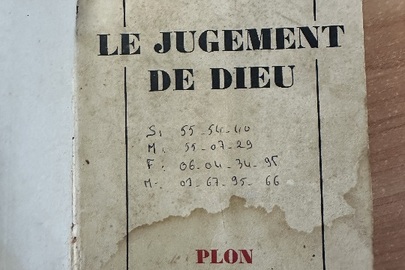 LE JUGEMENT
DE DIEU
S: 55-54-40
M: 55-07-29
F: 06-04-34-95
M: 07-67-95-66
PLON